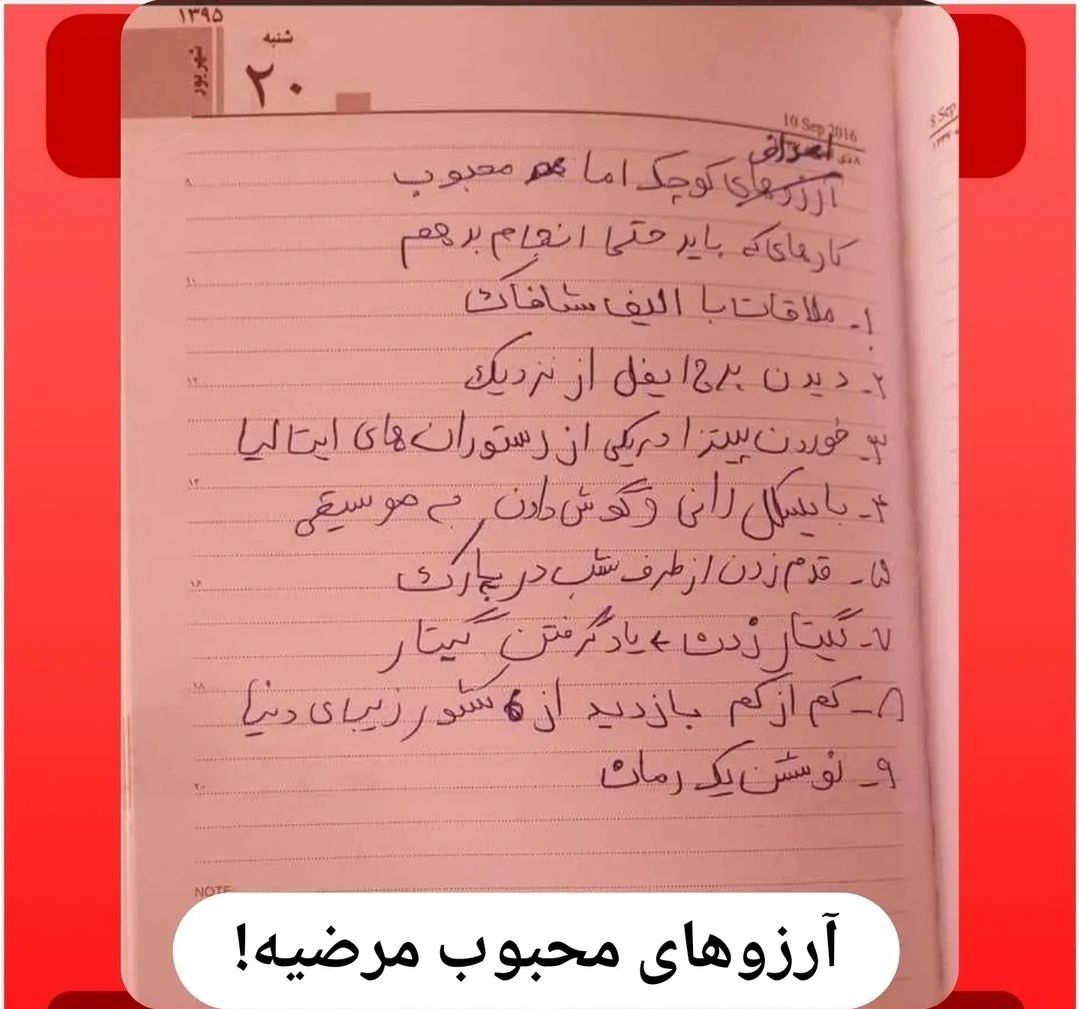 ۱۳۹۵
شهریور
شنبه
۲۰
10 Sep 2016
8 Sep
اهداف
آرزوهای کوچک اما محبوب
کارهای که باید حتمی انجام بدهم
۱- ملاقات با الیف شافاک
۲- دیدن برج ایفل از نزدیک
۳- خوردن پیتزا در یکی از رستوران های ایتالیا
۴- بایسکل رانی و گوش دادن به موسیقی
۵- قدم زدن از طرف شب در پارک
۷- گیتار زدن ← یاد گرفتن گیتار
۸- کم از کم بازدید از 6 کشور زیبای دنیا
۹- نوشتن یک رمان
۸
۱۰
۱۲
۱۴
۱۶
۱۸
۲۰
NOTE
آرزوهای محبوب مرضیه!